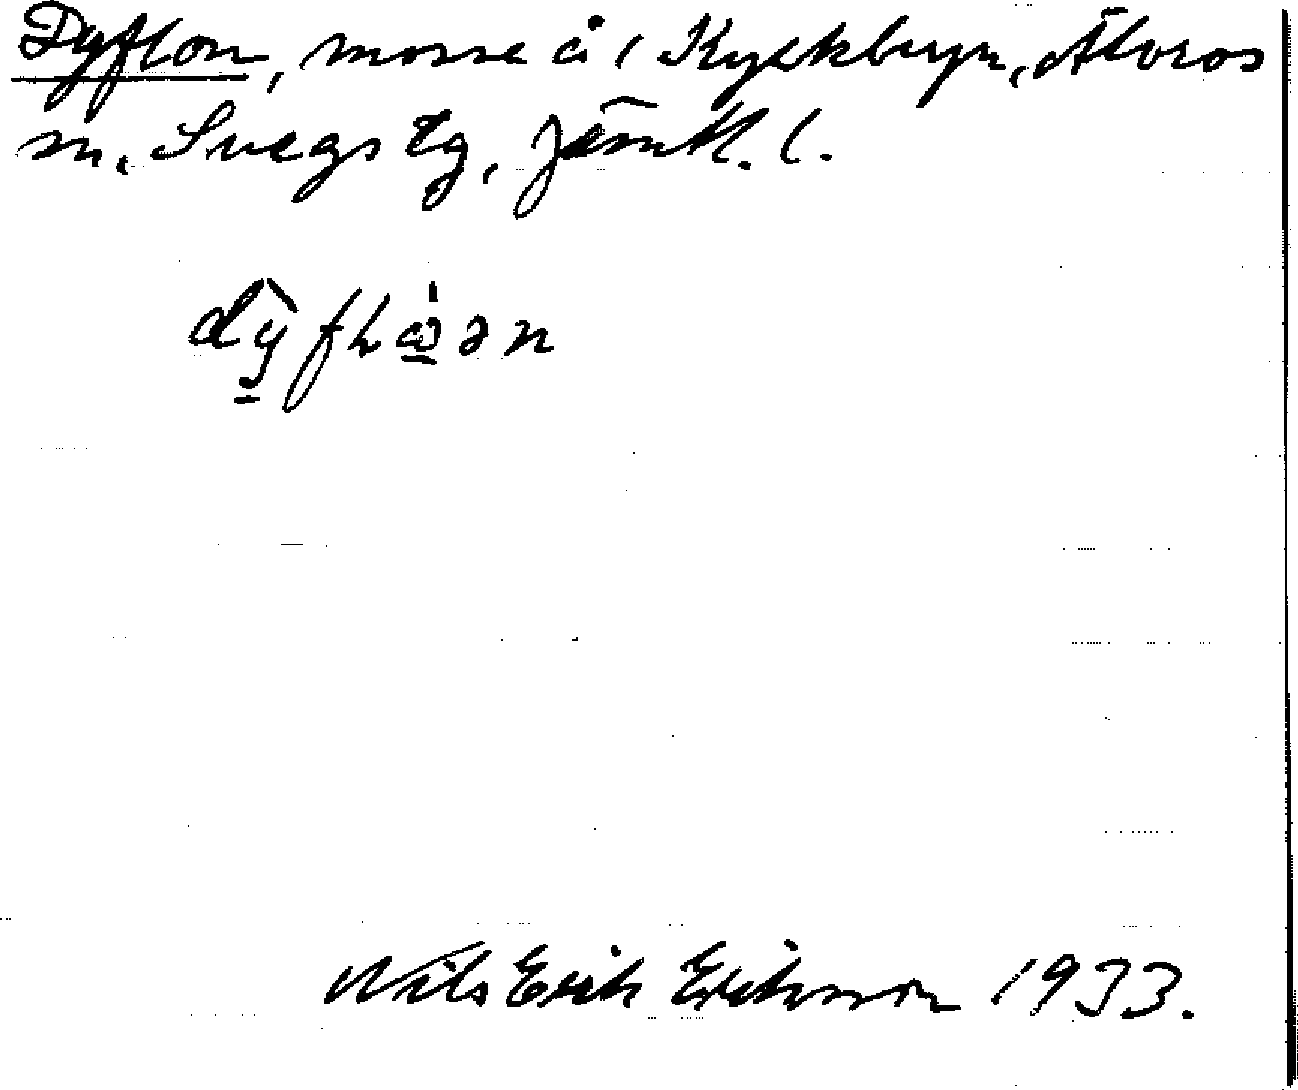 Dyflon, mosse å i Kyrkbyn, Älvros
sn, Svegs tg, Jämtl. l.
Nils Erik Eriksson 1933.